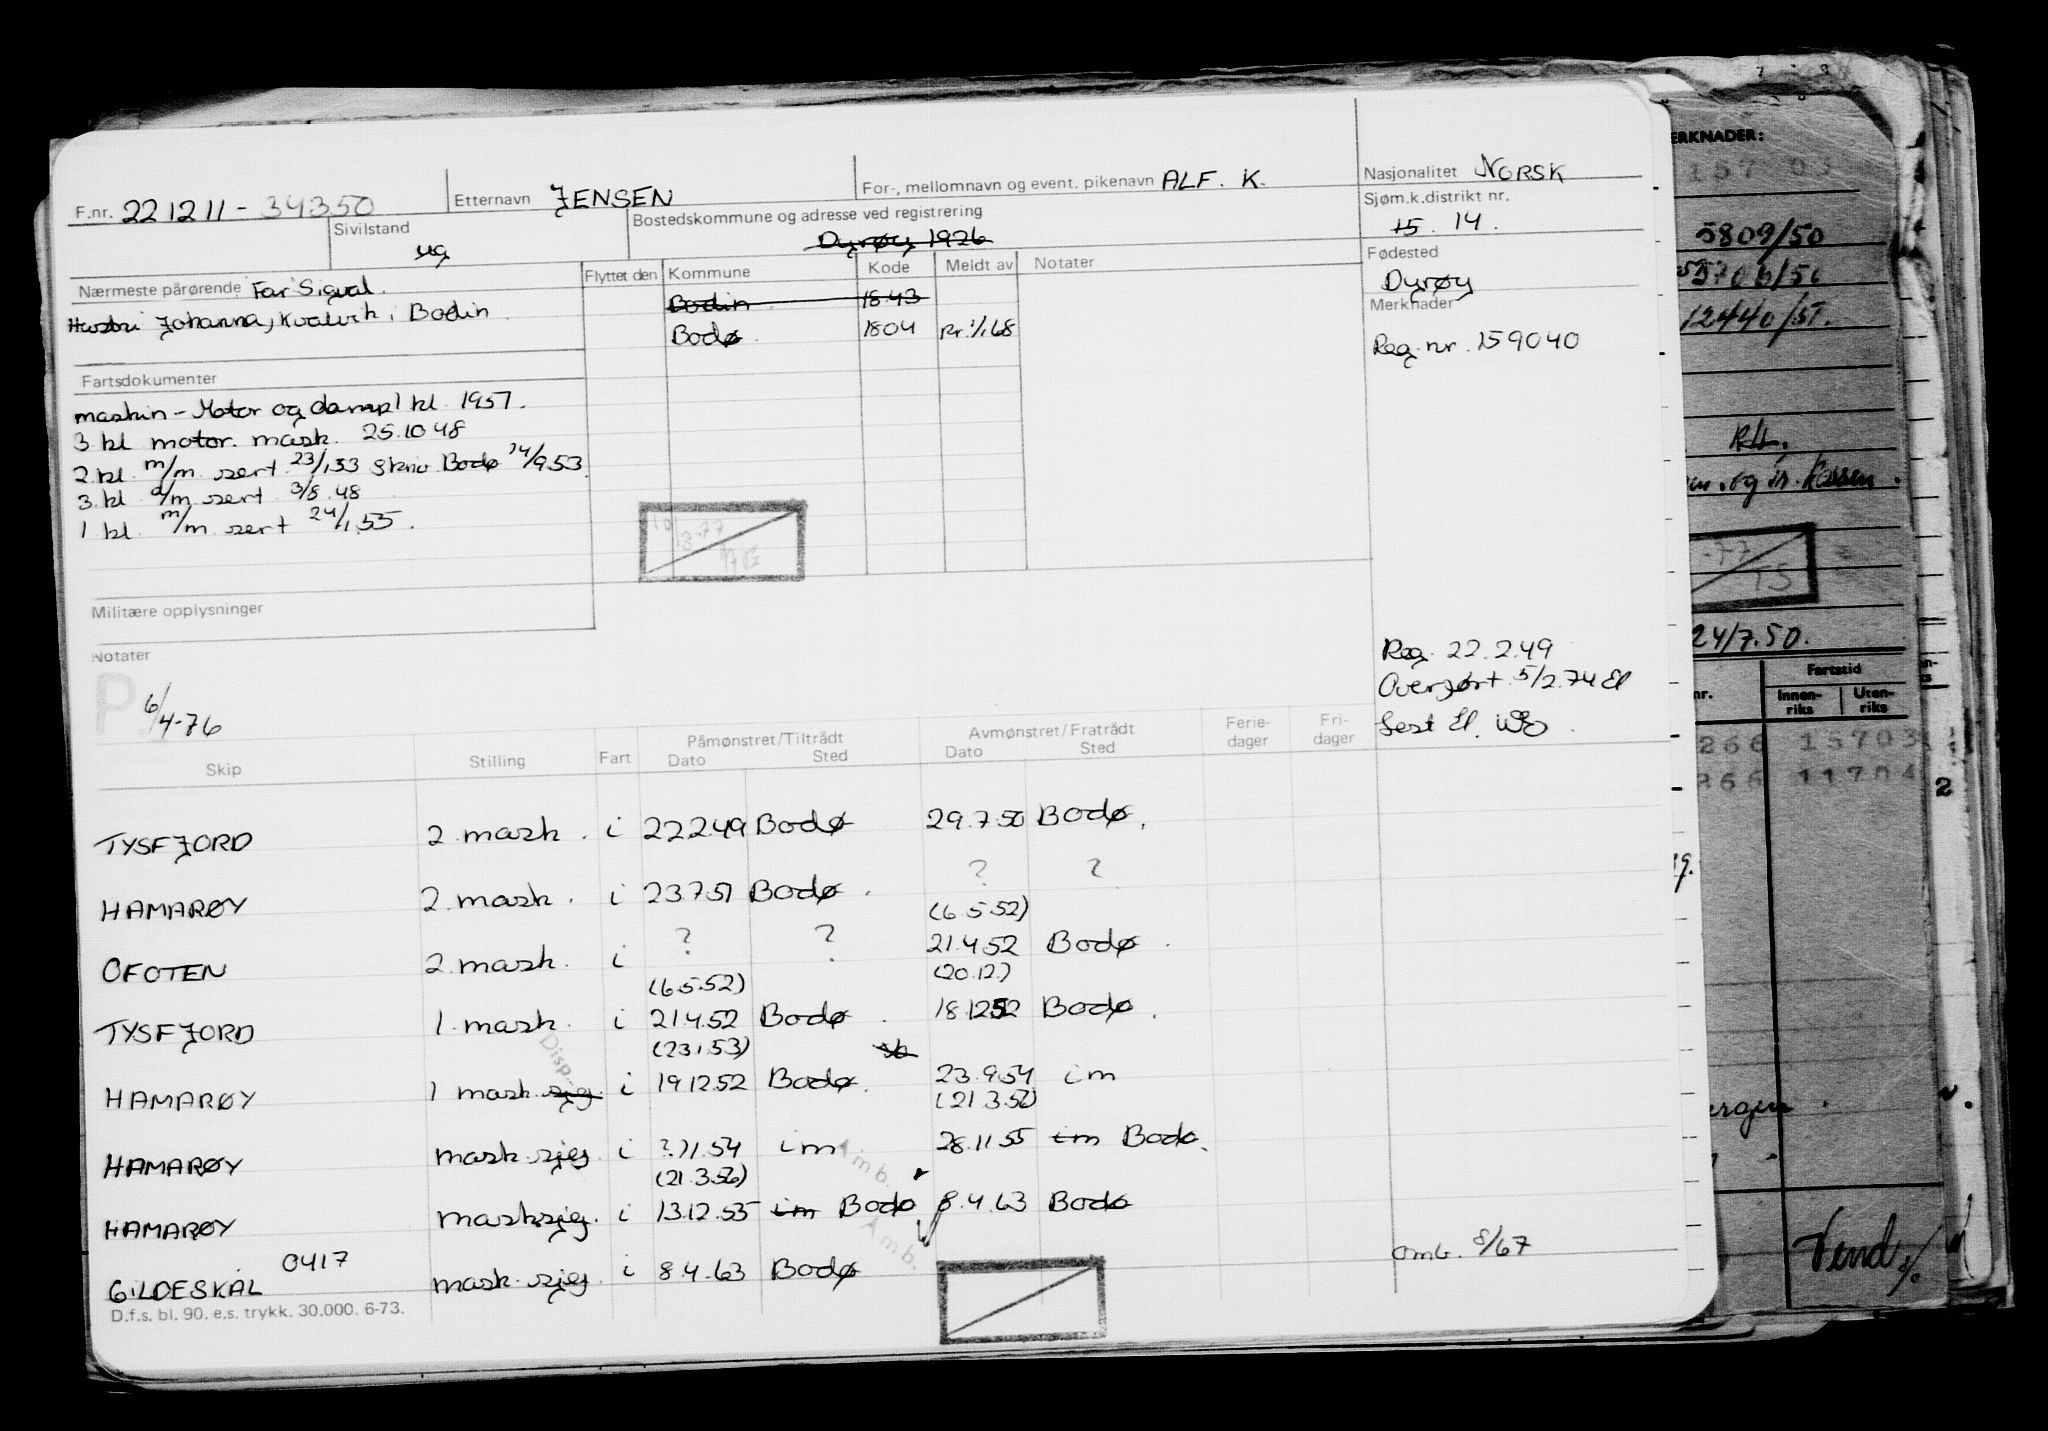 F.nr. 221211-34350
Etternavn JENSEN
For-, mellomnavn og event. pikenavn ALF. K.
Nasjonalitet NORSK
Sivilstand
ug
Bostedskommune og adresse ved registrering
Dyrøy 1926
Sjøm.k.distrikt nr.
15. 14.
Nærmeste pårørende Far Sigval.
Hustru Johanna, Kvalvik, Bodin
Flyttet den Kommune Kode Meldt av Notater
Bodin 1843
Bodø. 1804 Rr. 1/1.68
Fødested
Dyrøy
Merknader
Reg. nr. 159040
Fartsdokumenter
maskin - Motor og damp 1 kl. 1957.
3 kl motor. mask. 25.10 48
2 kl. m/m sert. 23/1.53 skriv Bodø 14/9.53
3 kl d/m sert 3/8.48
1 kl. m/m sert 24/1.55.
Militære opplysninger
Notater
P
6/4-76
Reg. 22.2.49
Overført 5/2.74 El
Lest El.
Skip Stilling Fart Påmønstret/Tiltrådt Dato Sted Avmønstret/Fratrådt Dato Sted Ferie-dager Fri-dager
TYSFJORD 2. mask. i 22249 Bodø 29.7.50 Bodø.
HAMARØY 2. mask. i 23751 Bodø. ? (6.5.52) ?
OFOTEN 2. mask. i ? (6.5.52) ? 21.4.52 (20.12.) Bodø.
TYSFJORD 1. mask. i 21.4.52 (23.1.53) Bodø. 18.1252 Bodø.
HAMARØY 1 mask. sjeg. i 19.12.52 Bodø. 23.9.54 (21.3.56) i m
Disp.
HAMARØY mask. sjeg. i ?.11.54 (21.3.56) i m 28.11.55 i m Bodø.
Amb.
HAMARØY mask.sjeg. i 13.12.55 i m Bodø 8.4.63 Bodø
Amb.
GILDESKÅL 0417 mask. sjeg. i 8.4.63 Bodø
omb. 8/67
D.f.s. bl. 90. e.s. trykk. 30.000. 6-73.
ERKNADER:
157 03
5809/50
5706/56
12440/57.
24/7.50.
nr. Fartstid
Innen-riks Uten-riks
266 15703
266 11704
2
ergen.
Vend